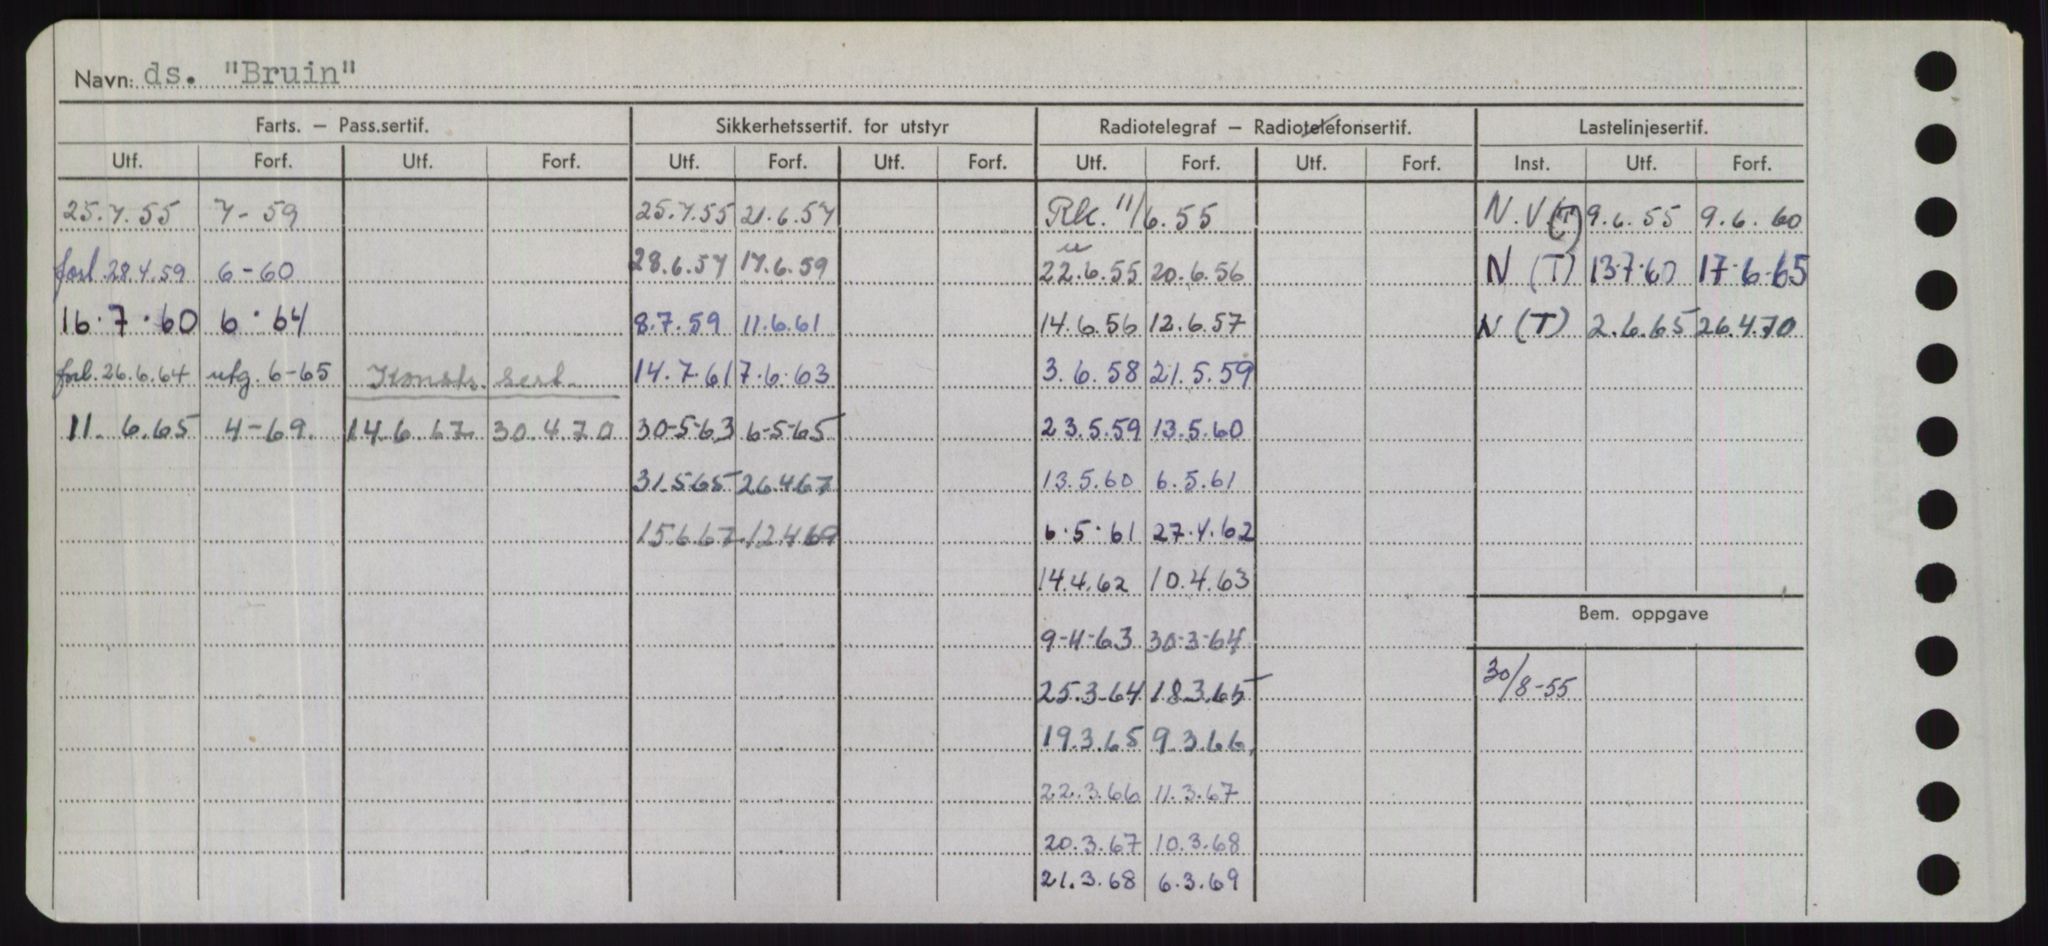 Navn: ds. "Bruin"
Farts. – Pass.sertif. Sikkerhetssertif. for utstyr Radiotelegraf – Radiotelefonsertif. Lastelinjesertif.
Utf. Forf. Utf. Forf. Utf. Forf. Utf. Forf. Utf. Forf. Utf. Forf. Inst. Utf. Forf.
25.7.55 7-59 25.7.55 21.6.57 Rk. 11/6.55 N.V.(T) 9.6.55 9.6.60
forl. 28.4.59 6-60 28.6.57 17.6.59 22.6.55 20.6.56 N (T) 13.7.60 17.6.65
16.7.60 6.64 8.7.59 11.6.61 14.6.56 12.6.57 N (T) 2.6.65 26.4.70
forl. 26.6.64 utg. 6-65 Konstr. sert. 14.7.61 7.6.63 3.6.58 21.5.59
11.6.65 4-69. 14.6.67 30.4.70 30-5-63 6-5-65 23.5.59 13.5.60
31.5.65 26.4.67 13.5.60 6.5.61
15.6.67 12.4.69 6.5.61 27.4.62
14.4.62 10.4.63
Bem. oppgave
9-4-63 30-3-64
30/8-55
25.3.64 18.3.65
19.3.65 9.3.66
22.3.66 11.3.67
20.3.67 10.3.68
21.3.68 6.3.69